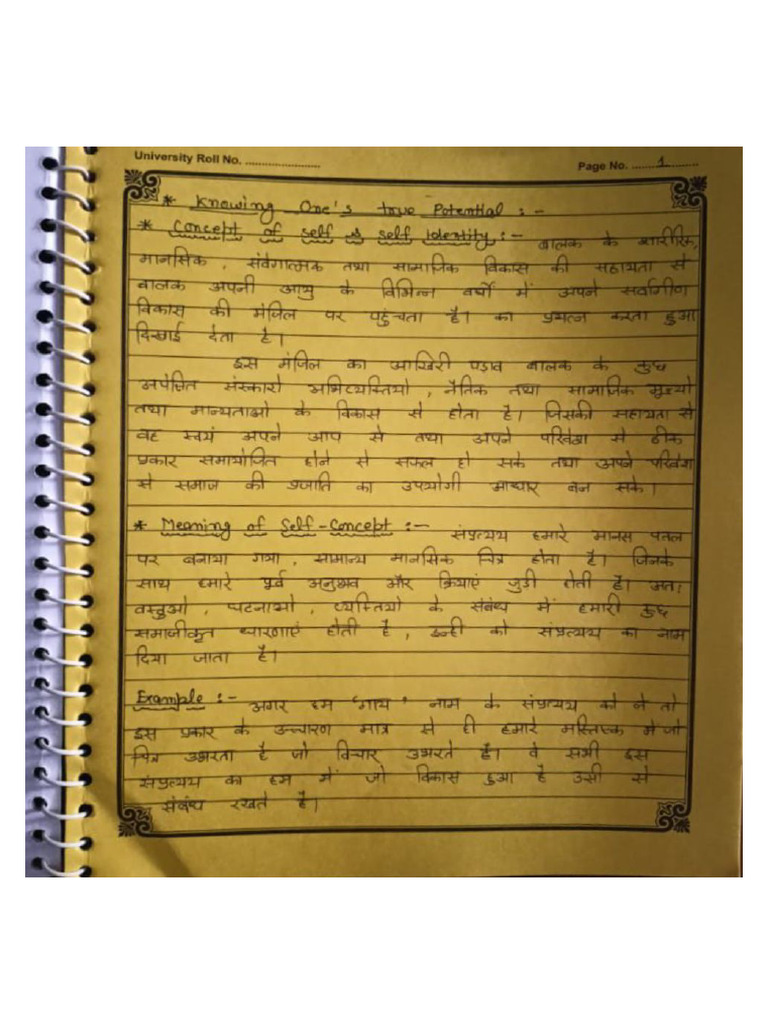 University Roll No. ........................
Page No. ........1...........
* Knowing One's true Potential :-
* Concept of Self & Self Identity :- बालक के शारीरिक,
मानसिक , संवेगात्मक तथा सामाजिक विकास की सहायता से
बालक अपनी आयु के विभिन्न वर्षो में अपने सर्वागीण
विकास की मंजिल पर पहुंचता है। का प्रयत्न करता हुआ
दिखाई देता है।
इस मंजिल का आखिरी पडाव बालक के कुछ
अपेक्षित संस्कारो अभिव्यक्तियो , नैतिक तथा सामाजिक मूल्यो
तथा मान्यताओ के विकास से होता है। जिसकी सहायता से
वह स्वयं अपने आप से तथा अपने परिवेश से ठीक
प्रकार समायोजित होने से सफल हो सके तथा अपने परिवेश
से समाज की का उपयोगी आधार बन सके।
* Meaning of Self-Concept :- संप्रत्यय हमारे मानस पतल
पर बनाया गया , सामान्य मानसिक चित्र होता है। जिनके
साथ हमारे पूर्व अनुभव और क्रियाएं जुडी होती है। अतः
वस्तुओ , घटनाओ , व्यक्तियो के संबंध में हमारी कुछ
समाजीकृत धारणाएं होती है , इन्ही को संप्रत्यय का नाम
दिया जाता है।
Example :- अगर हम 'गाय' नाम के संप्रत्यय को ने तो
इस प्रकार के उच्चारण मात्र से ही हमारे मस्तिष्क मे जो
चित्र उभरता है जो विचार उभरते है। वे सभी इस
संप्रत्यय का हम में जो विकास हुआ है उसी से
संबंध रखते है।